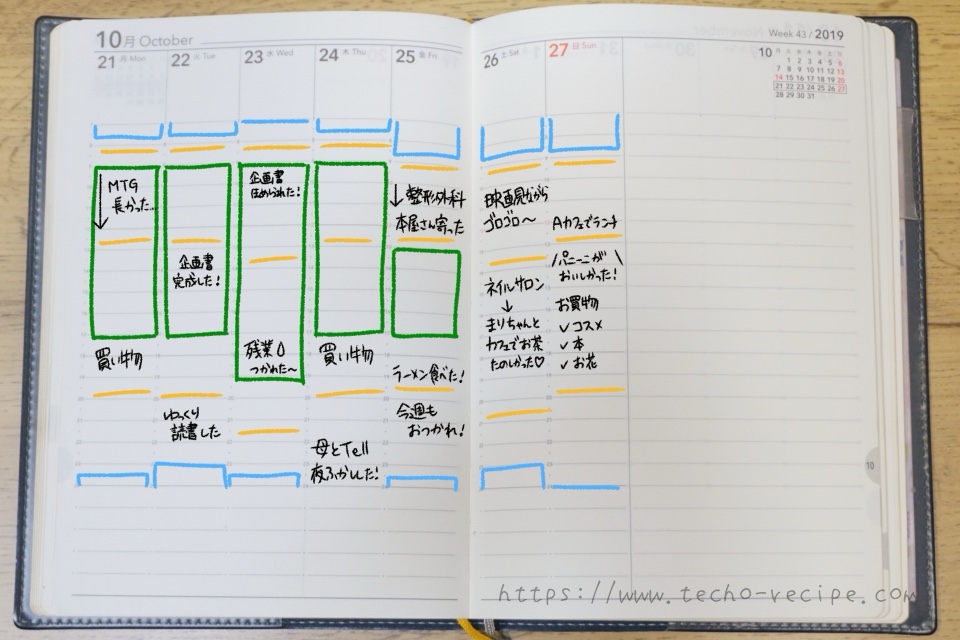 10月 October
21 月 Mon
22 火 Tue
23 水 Wed
24 木 Thu
25 金 Fri
26 土 Sat
27 日 Sun
Week 43 / 2019
10 月 火 水 木 金 土 日
1 2 3 4 5 6
7 8 9 10 11 12 13
14 15 16 17 18 19 20
21 22 23 24 25 26 27
28 29 30 31
MTG
長かった..
買い物
企画書
完成した!
ゆっくり
読書した
企画書
ほめられた!
残業
つかれた〜
買い物
母とTell
夜ふかしした!
整形外科
本屋さん寄った
ラーメン食べた!
今週も
おつかれ!
映画見ながら
ゴロゴロ〜
ネイルサロン
↓
まりちゃんと
カフェでお茶
たのしかった♡
Aカフェでランチ
パニーニが
おいしかった!
お買物
✓コスメ
✓本
✓お花
10
https://www.techo-recipe.com